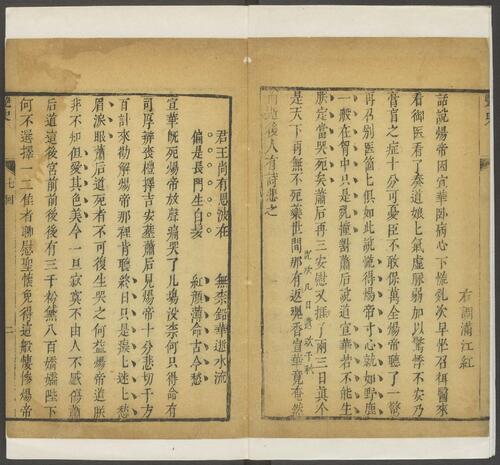 右調滿江紅
話說煬帝因宣華臥病心下慌亂次早坐召個醫來
看御醫看了奏道娘娘氣虛脈弱加以驚悸不安乃
膏肓之症十分可憂臣不敢保萬全煬帝聽了一驚
再召別醫個個上俱如此說諕得煬帝寸心就如野鹿
一般在胸中只是亂撞對蕭后說道宣華若不能生
朕定當哭死矣蕭后再三安慰又捱了兩三日真個
是天下再無不死藥世間那有返魂香宣華竟奄然
而逝後人有詩悲之
君王尚有恩波在
無柰鉛華逝水流
偏是長門生白髮
紅顏薄命古今愁
宣華既死煬帝放聲痛哭了幾場沒柰何只得命有
司厚葬喪禮擇吉安墓蕭后見煬帝十分悲切千方
百計來勸解煬帝那裡肯聽終日只是痴七迷七愁
眉淚眼蕭后道死者不可復生哭之何益煬帝道朕
非不知但愛其色美今一旦寂寞不由人不感傷蕭
后道這後宮前前後後有三千粉黛八百嬌嬌陛下
何不選擇一二佳者聊慰聖懷免得這般悽慘煬帝
艷史
七回
二